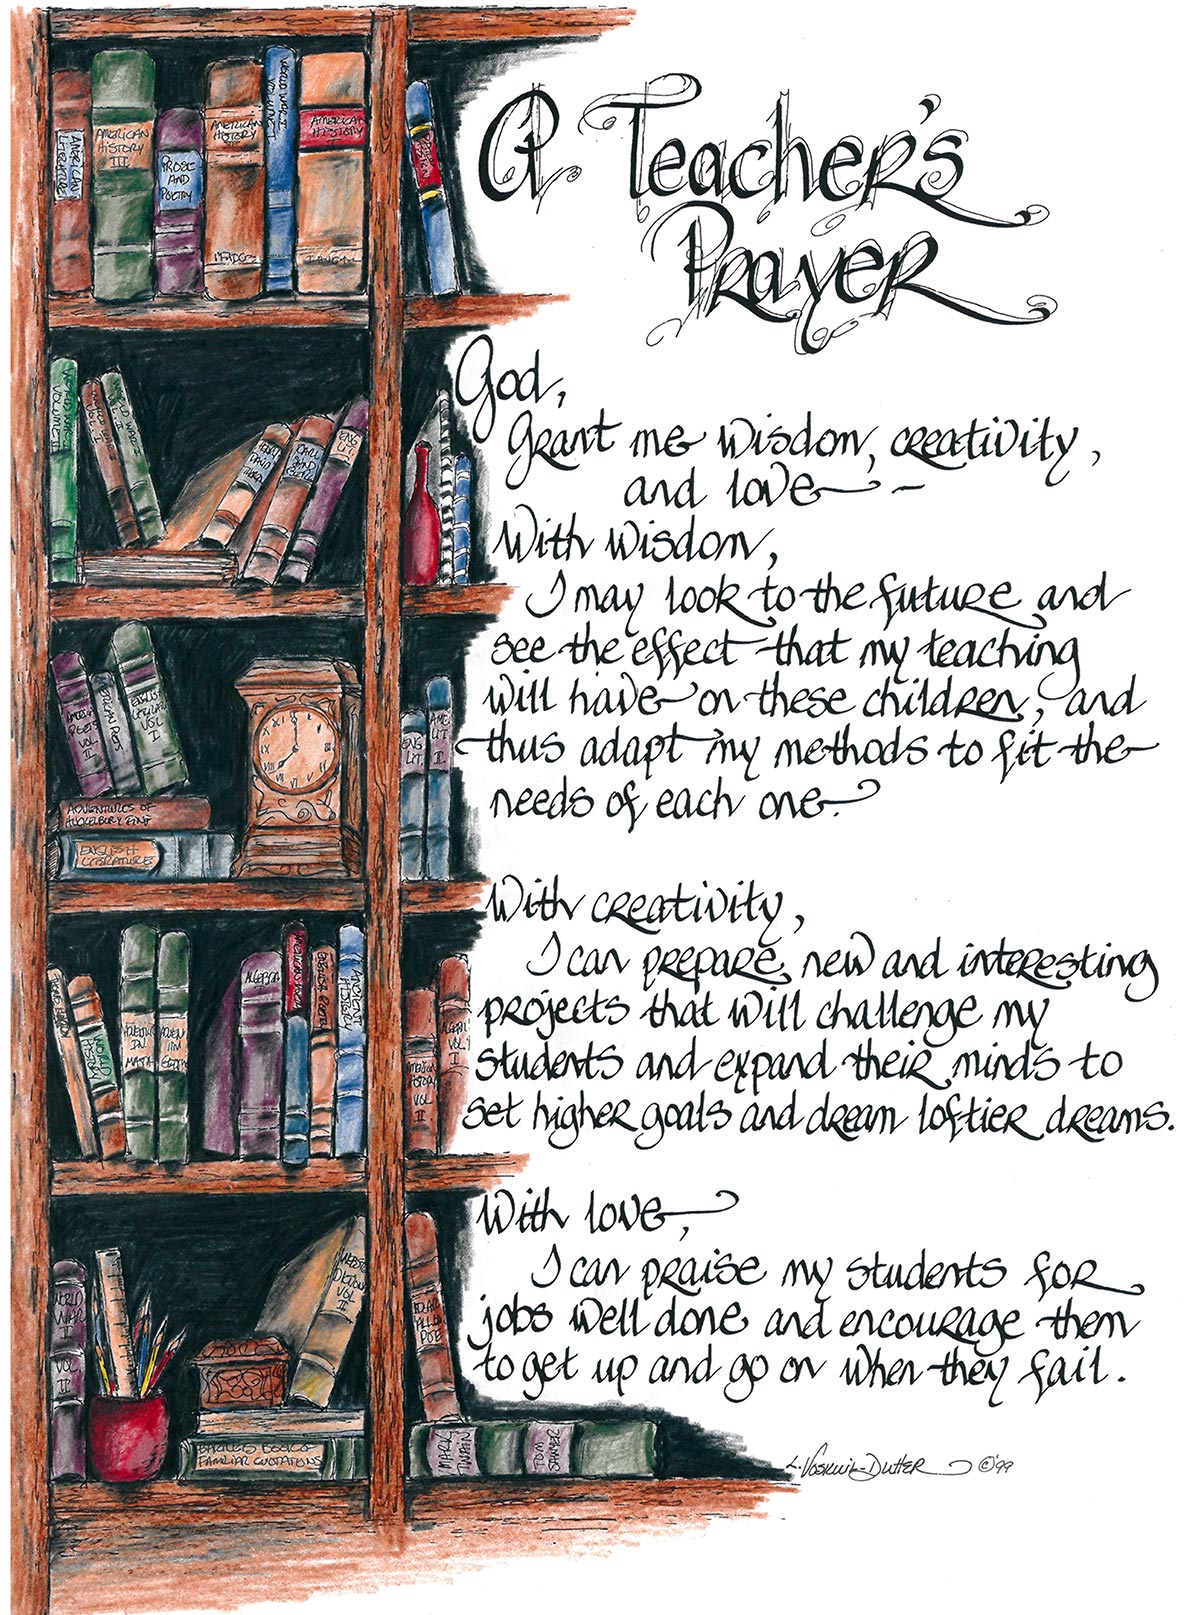 A Teacher's
Prayer
God,
Grant me wisdom, creativity,
and love ~
With wisdom,
I may look to the future and
see the effect that my teaching
will have on these children, and
thus adapt my methods to fit the
needs of each one.
With creativity,
I can prepare new and interesting
projects that will challenge my
students and expand their minds to
set higher goals and dream loftier dreams.
With love,
I can praise my students for
jobs well done and encourage them
to get up and go on when they fail.
©'99
AMERICAN
LITERATURE
AMERICAN
HISTORY
III
PROSE
AND
POETRY
AMERICAN
HISTORY
WORLD WAR I
VOLUME I
AMERICAN
HISTORY
I
VOLUME I
WORLD WAR
VOL. I
ENG
LIT.
AMERICAN
POETS
VOL
II
ENGLISH
LITERATURE
VOL
I
ADVENTURES OF
HUCKELBURY FINN
ENGLISH
LITERATURE
ENG
LIT.
AME
LIT
II
XII
WORLD
HISTORY
ADVEN
IN
MATH
ALGEBRA
ANCIENT
HISTORY
HISTORY
VOL
II
ALGEBRA
VOL
II
WORLD
WAR
II
VOL.
II
WEBSTERS
DICTIONARY
VOL
II
ALLAN
POE
FAMILIAR QUOTATIONS
MARK
TWAIN
TOM
SAWYER